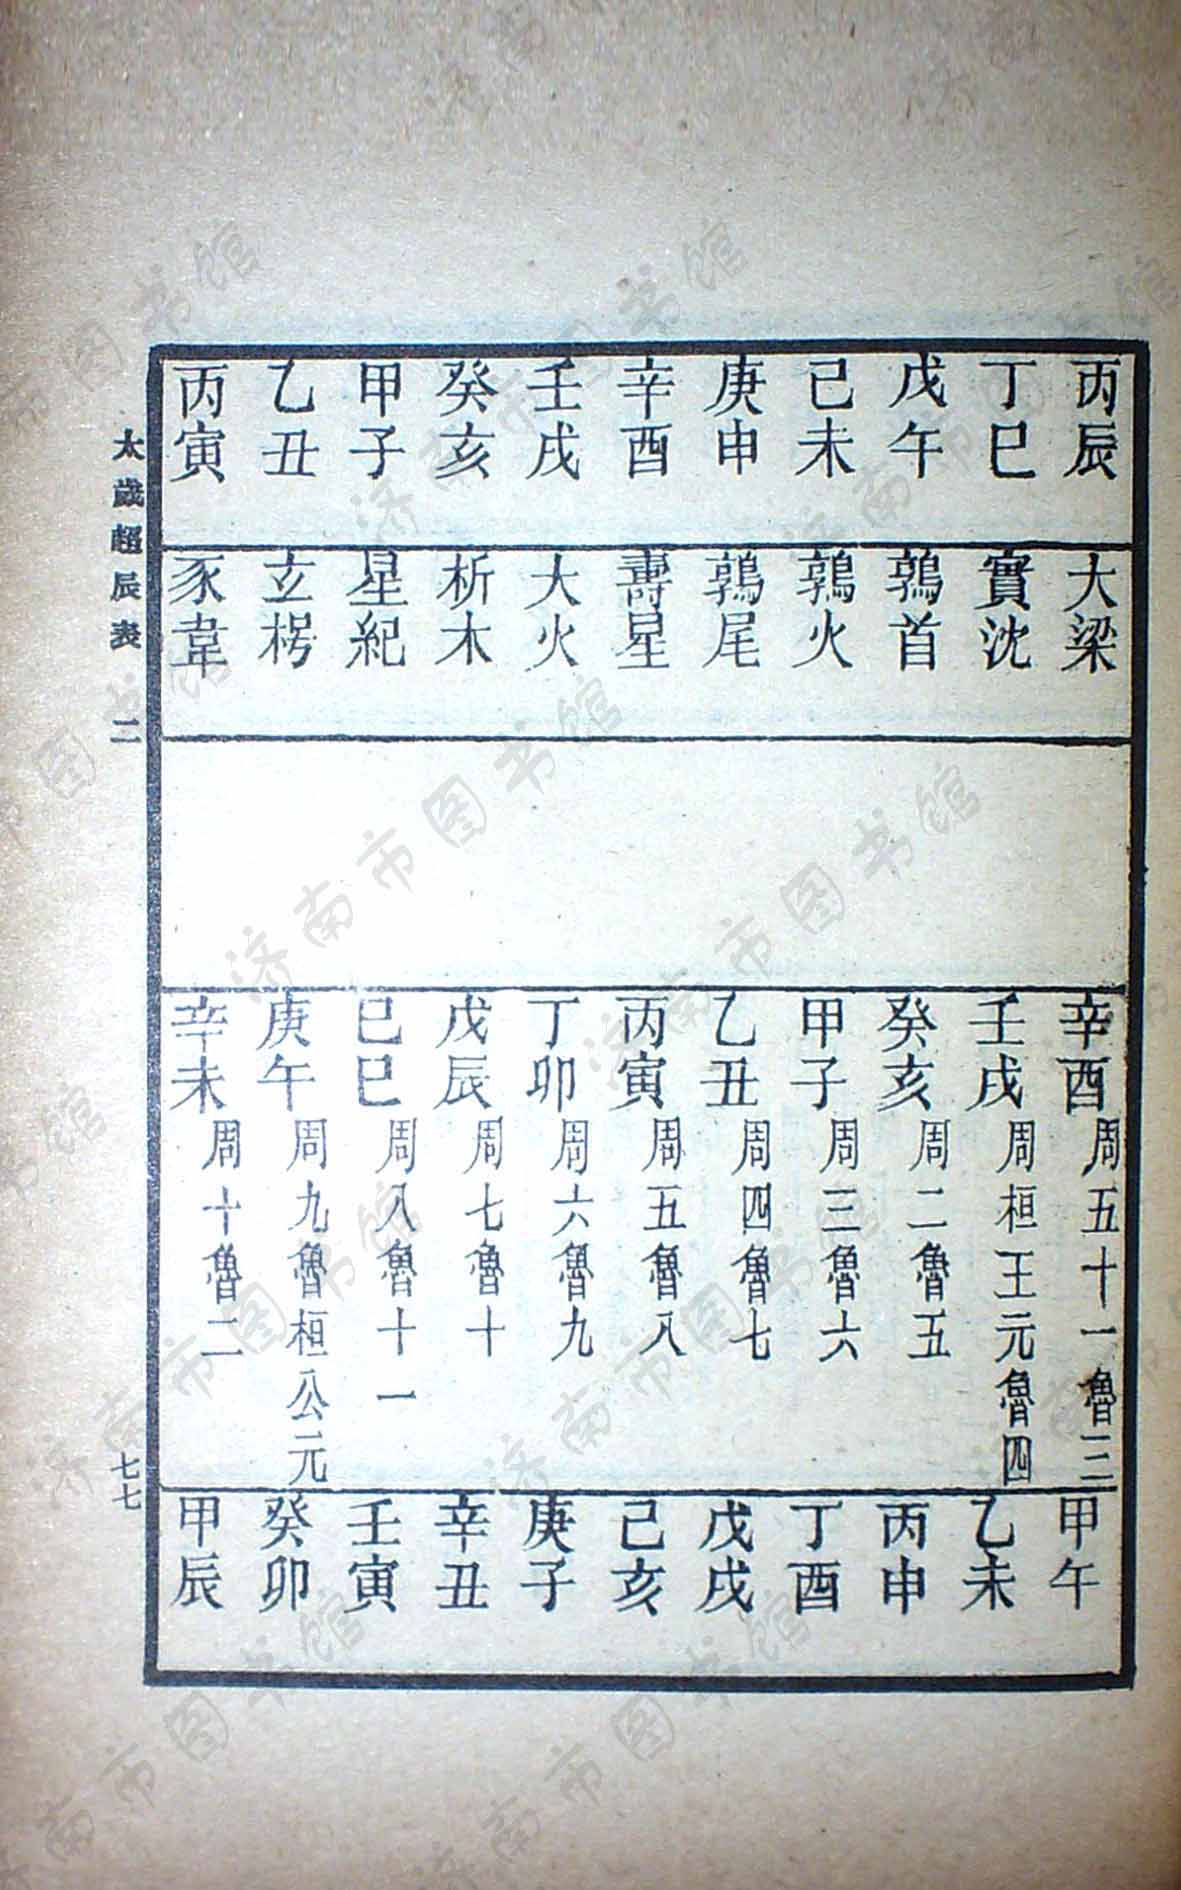 丙辰 丁巳 戊午 己未 庚申 辛酉 壬戌 癸亥 甲子 乙丑 丙寅
大梁 實沈 鶉首 鶉火 鶉尾 壽星 大火 析木 星紀 玄枵 豕韋
辛酉周五十一魯三
壬戌周桓王元魯四
癸亥周二魯五
甲子周三魯六
乙丑周四魯七
丙寅周五魯八
丁卯周六魯九
戊辰周七魯十
己巳周八魯十一
庚午周九魯桓公元
辛未周十魯二
甲午 乙未 丙申 丁酉 戊戌 己亥 庚子 辛丑 壬寅 癸卯 甲辰
太歲超辰表 二
七七
济南市图书馆